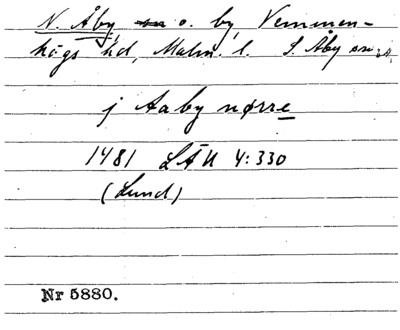 N. Åby sn o. by Vemmen-
högs hd, Malm. l. S. Åby sn
j Aaby nørre
1481 LÄU 4:330
(Lund)
Nr 5880.